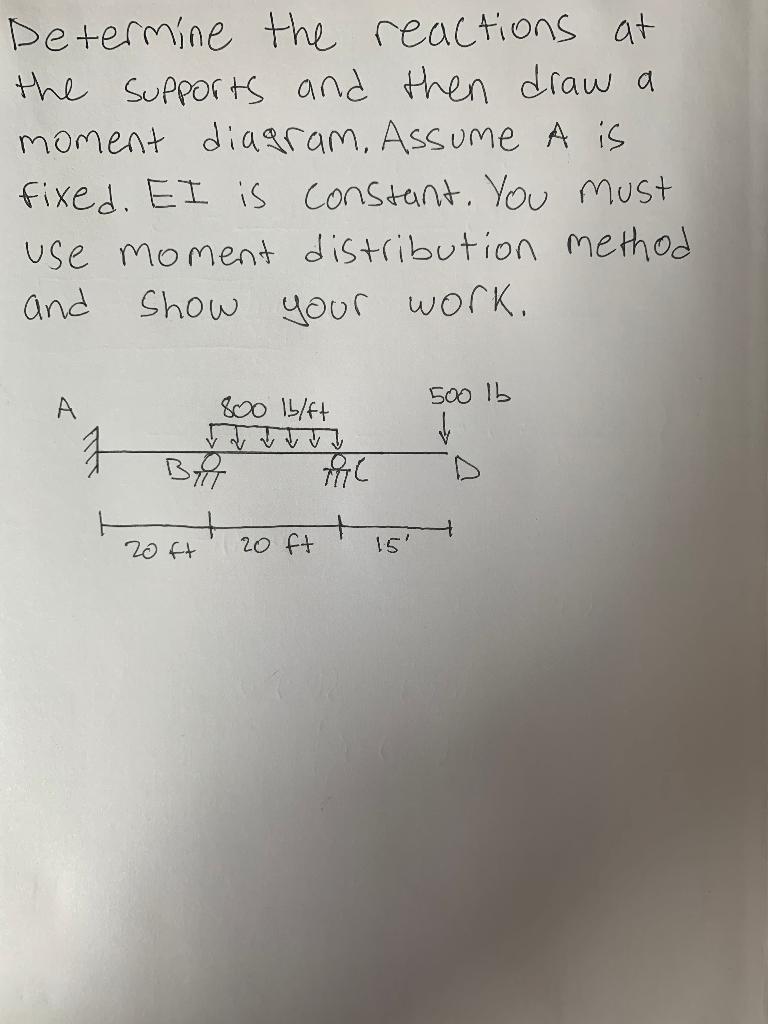 Determine the reactions at
the supports and then draw a
moment diagram. Assume A is
fixed. EI is constant. You must
use moment distribution method
and show your work.
500 lb
A 800 lb/ft
B C D
20 ft 20 ft 15'